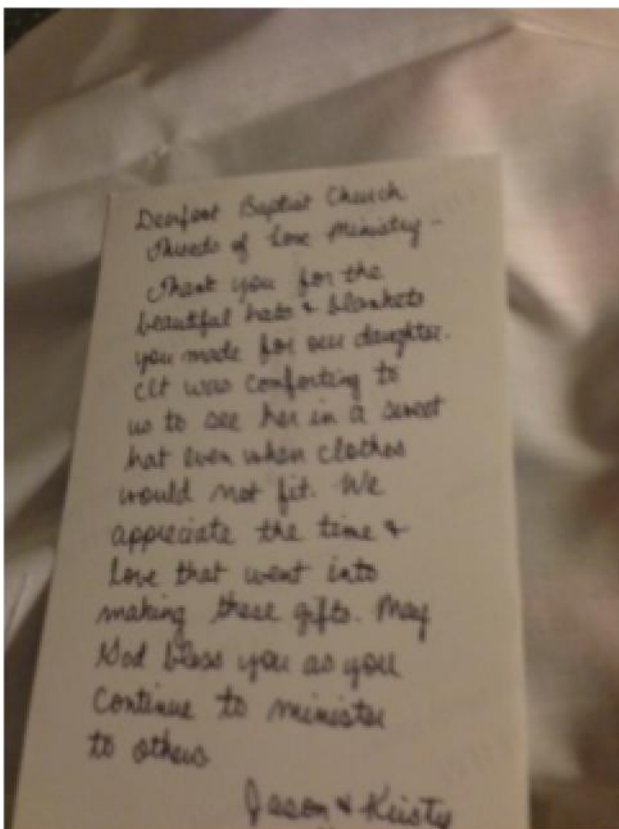 Deerfoot Baptist Church
Threads of Love Ministry -
Thank you for the
beautiful hats & blankets
you made for our daughter.
It was comforting to
us to see her in a sweet
hat even when clothes
would not fit. We
appreciate the time &
love that went into
making these gifts. May
God bless you as you
continue to minister
to others
Jason & Kristy